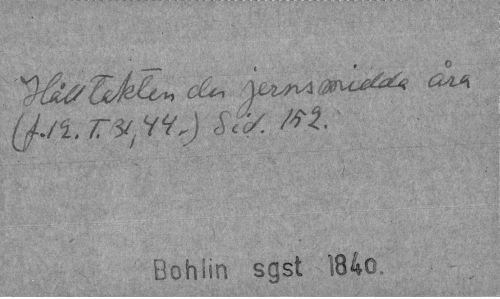 Håll takten du jernsmidda åra
(f.12. T. 31,44.) Sid. 152.
Bohlin sgst 1840.